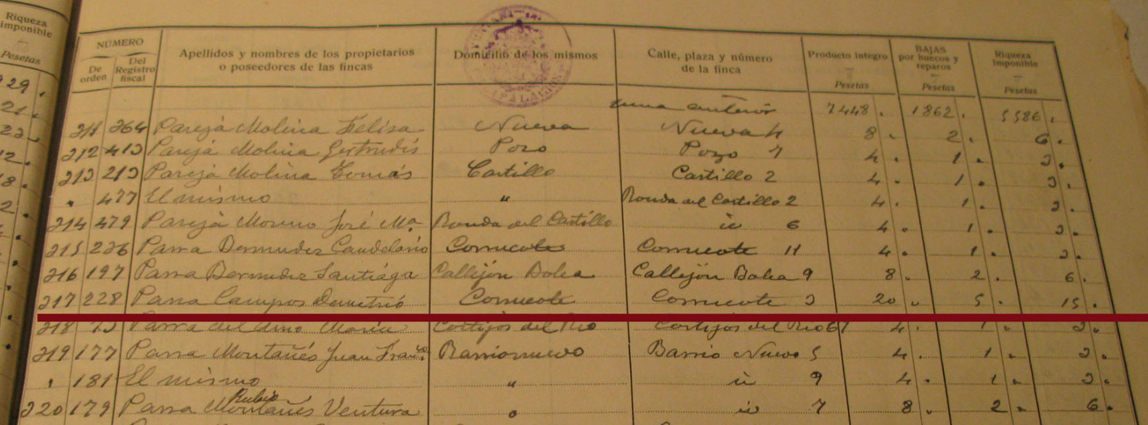 Riqueza imponible
Pesetas
29.
21.
22.
12.
18.
2.
NÚMERO
De orden
Del Registro fiscal
Apellidos y nombres de los propietarios o poseedores de las fincas
Domicilio de los mismos
Calle, plaza y número de la finca
Producto íntegro
Pesetas
BAJAS por huecos y reparos
Pesetas
Riqueza imponible
Pesetas
Suma anterior 7448. 1862. 5586.
211 264 Pareja Molina Felisa Nueva Nueva 4 8. 2. 6.
212 413 Pareja Molina Gertrudis Pozo Pozo 7 4. 1. 3.
213 213 Pareja Molina Tomás Castillo Castillo 2 4. 1. 3.
" 477 El mismo " Ronda del Castillo 2 4. 1. 3.
214 479 Pareja Moreno José Mª Ronda del Castillo id 6 4. 1. 3.
215 236 Parra Bermudez Candelario Cornicote Cornicote 11 4. 1. 3.
216 197 Parra Bermudez Santiago Callejón Bolea Callejón Bolea 9 8. 2. 6.
217 228 Parra Campos Demetrio Cornicote Cornicote 3 20 " 5. 15.
218 Parra del María Cortijos del Rio Cortijos del Rio 61 4. 1. 3.
219 177 Parra Montañés Juan Franco Barrionuevo Barrio Nuevo 5 4. 1. 3.
" 181 El mismo " id 9 4. 1. 3.
220 179 Parra Rubio Montañés Ventura " id 7 8. 2. 6.